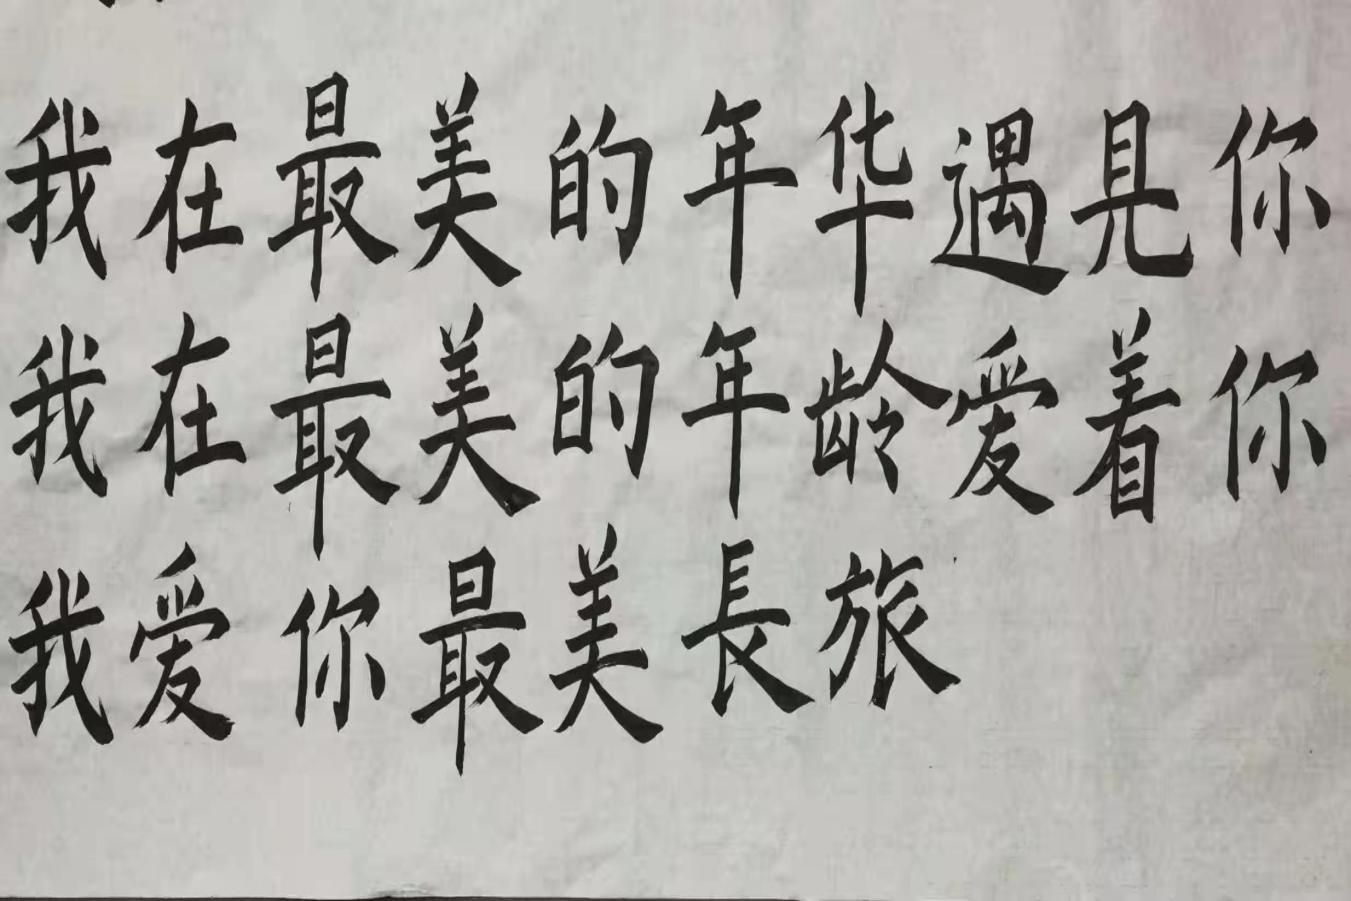 我在最美的年华遇見你
我在最美的年龄爱着你
我爱你最美長旅